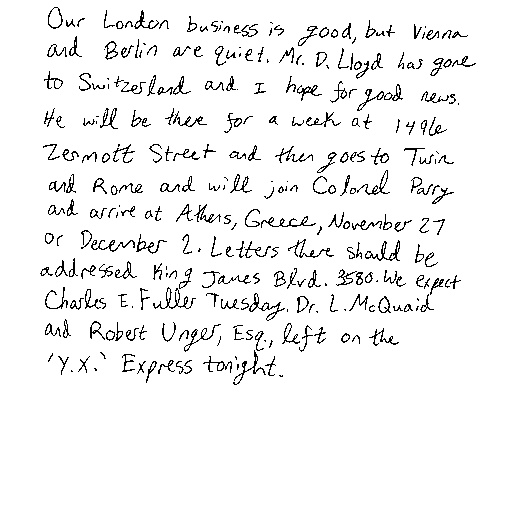 Our London business is good, but Vienna
and Berlin are quiet. Mr. D. Lloyd has gone
to Switzerland and I hope for good news.
He will be there for a week at 1496
Zermott Street and then goes to Turin
and Rome and will join Colonel Parry
and arrive at Athens, Greece, November 27
or December 2. Letters there should be
addressed King James Blvd. 3580. We expect
Charles E. Fuller Tuesday. Dr. L. McQuaid
and Robert Unger, Esq., left on the
'Y.X.' Express tonight.